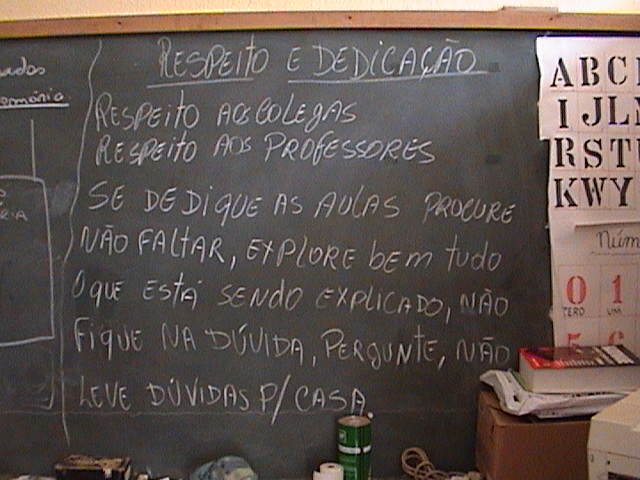 RESPEITO E DEDICAÇÃO
RESPEITO AOS COLEGAS
RESPEITO AOS PROFESSORES
SE DEDIQUE AS AULAS PROCURE
NÃO FALTAR, EXPLORE bem tudo
O QUE ESTÁ SENDO EXPLICADO, NÃO
FIQUE NA DÚVIDA, PERGUNTE, NÃO
LEVE DÚVIDAS P/ CASA.
A B C
I J L
R S T
K W Y
Núm
0 1
ZERO UM
5 6